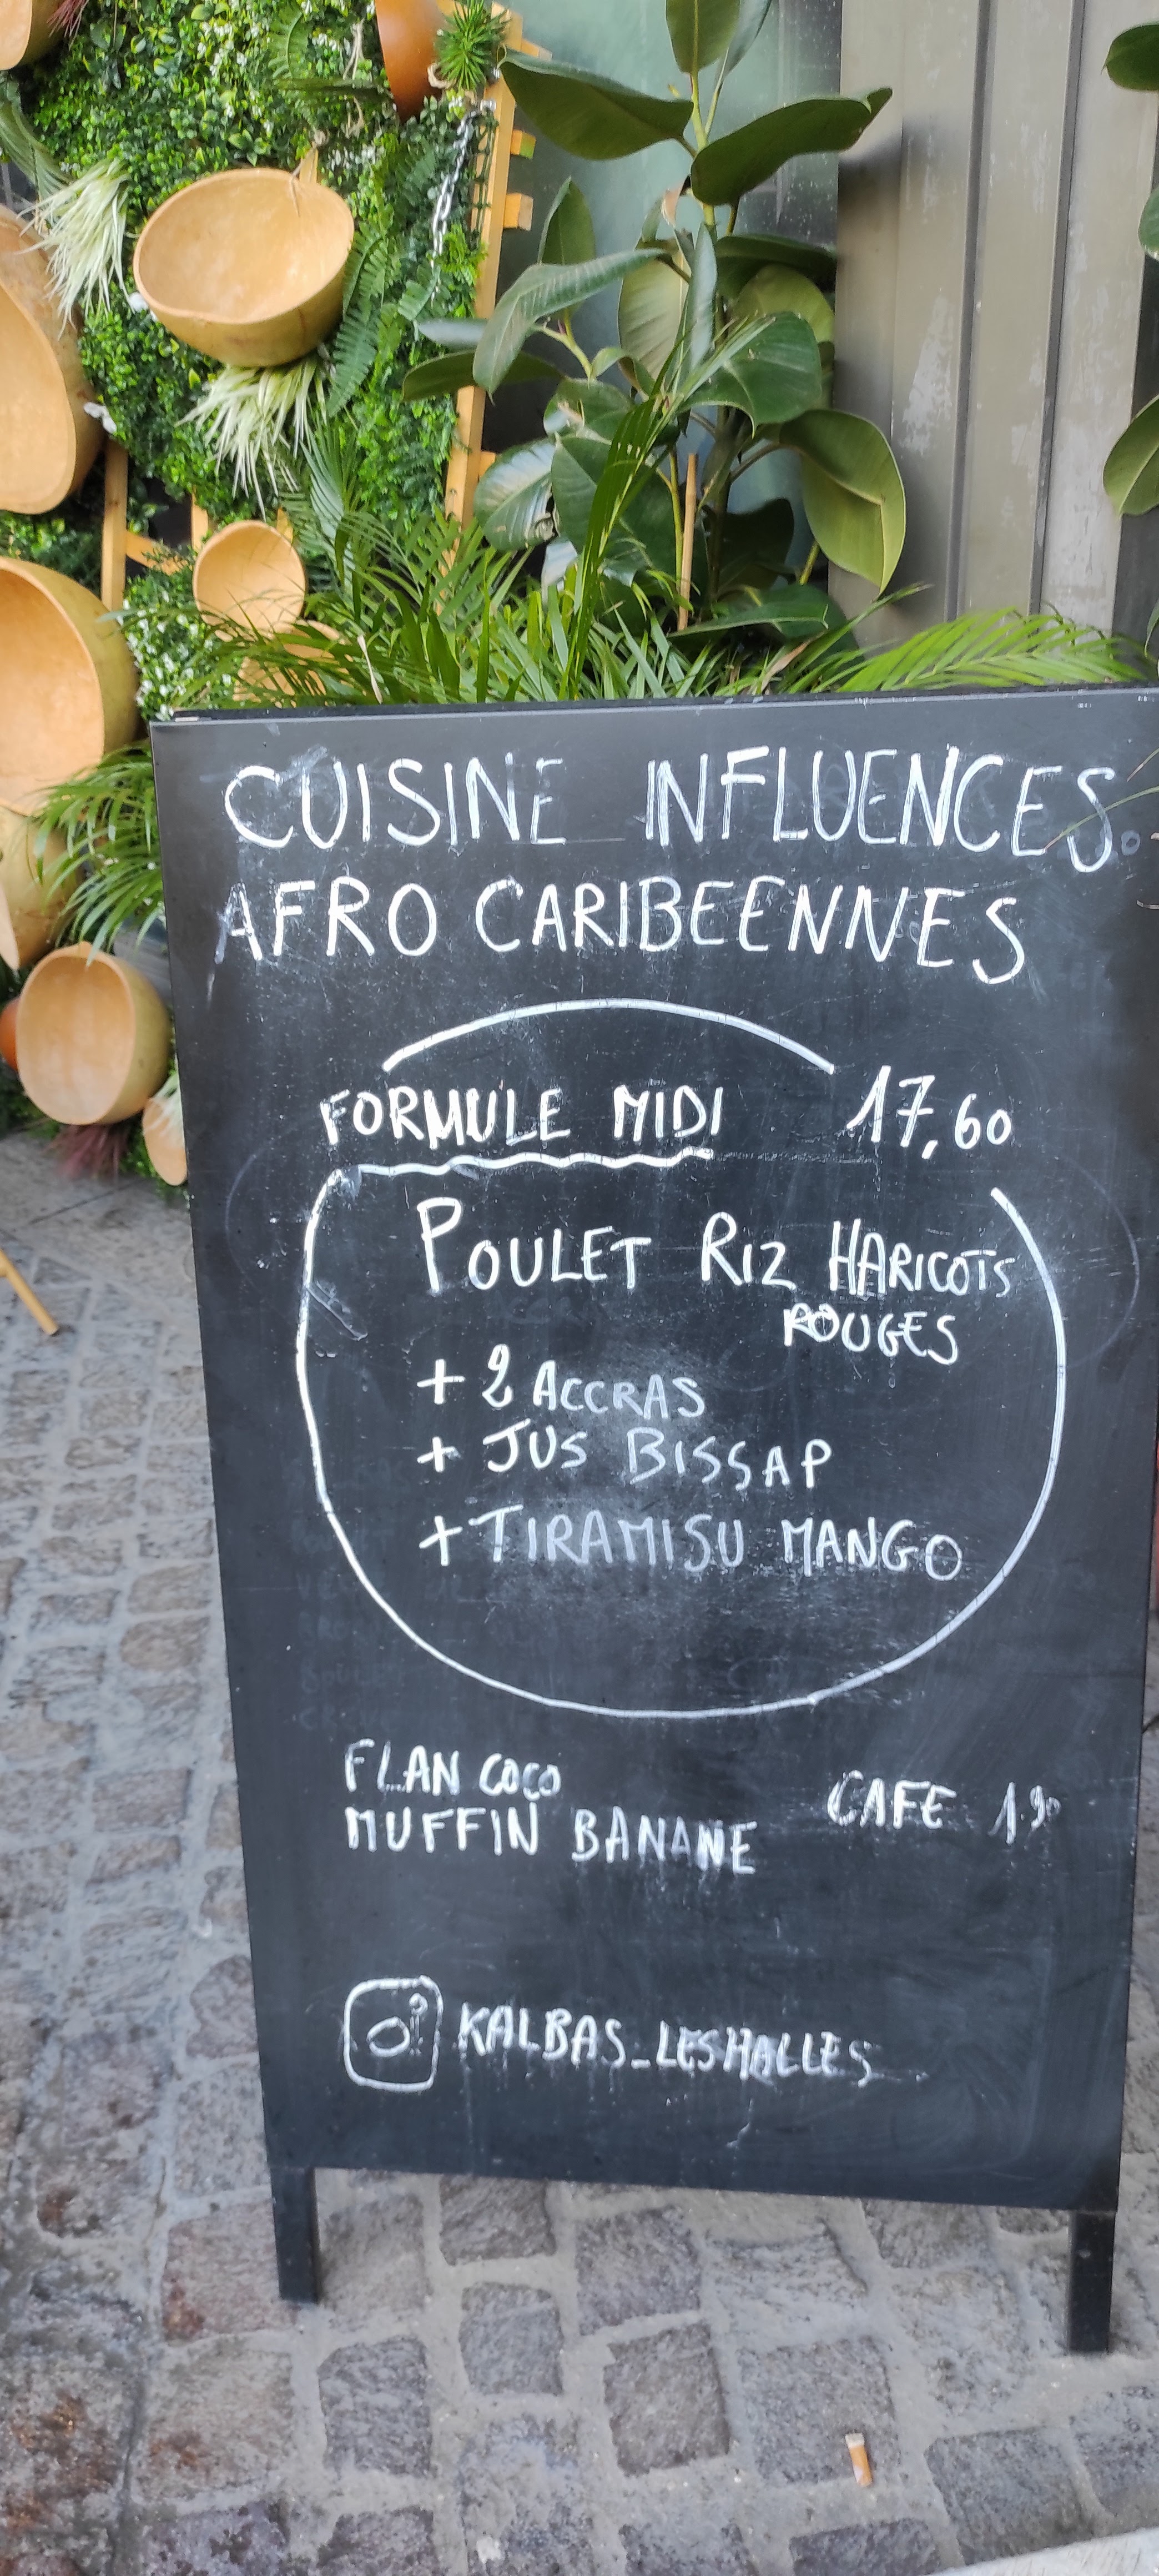 CUISINE INFLUENCES
AFRO CARIBEENNES
FORMULE MIDI 17,60
POULET RIZ HARICOTS
ROUGES
+ 2 ACCRAS
+ JUS BISSAP
+ TIRAMISU MANGO
FLAN COCO
MUFFIN BANANE
CAFE 1.90
KALBAS_LESHALLES